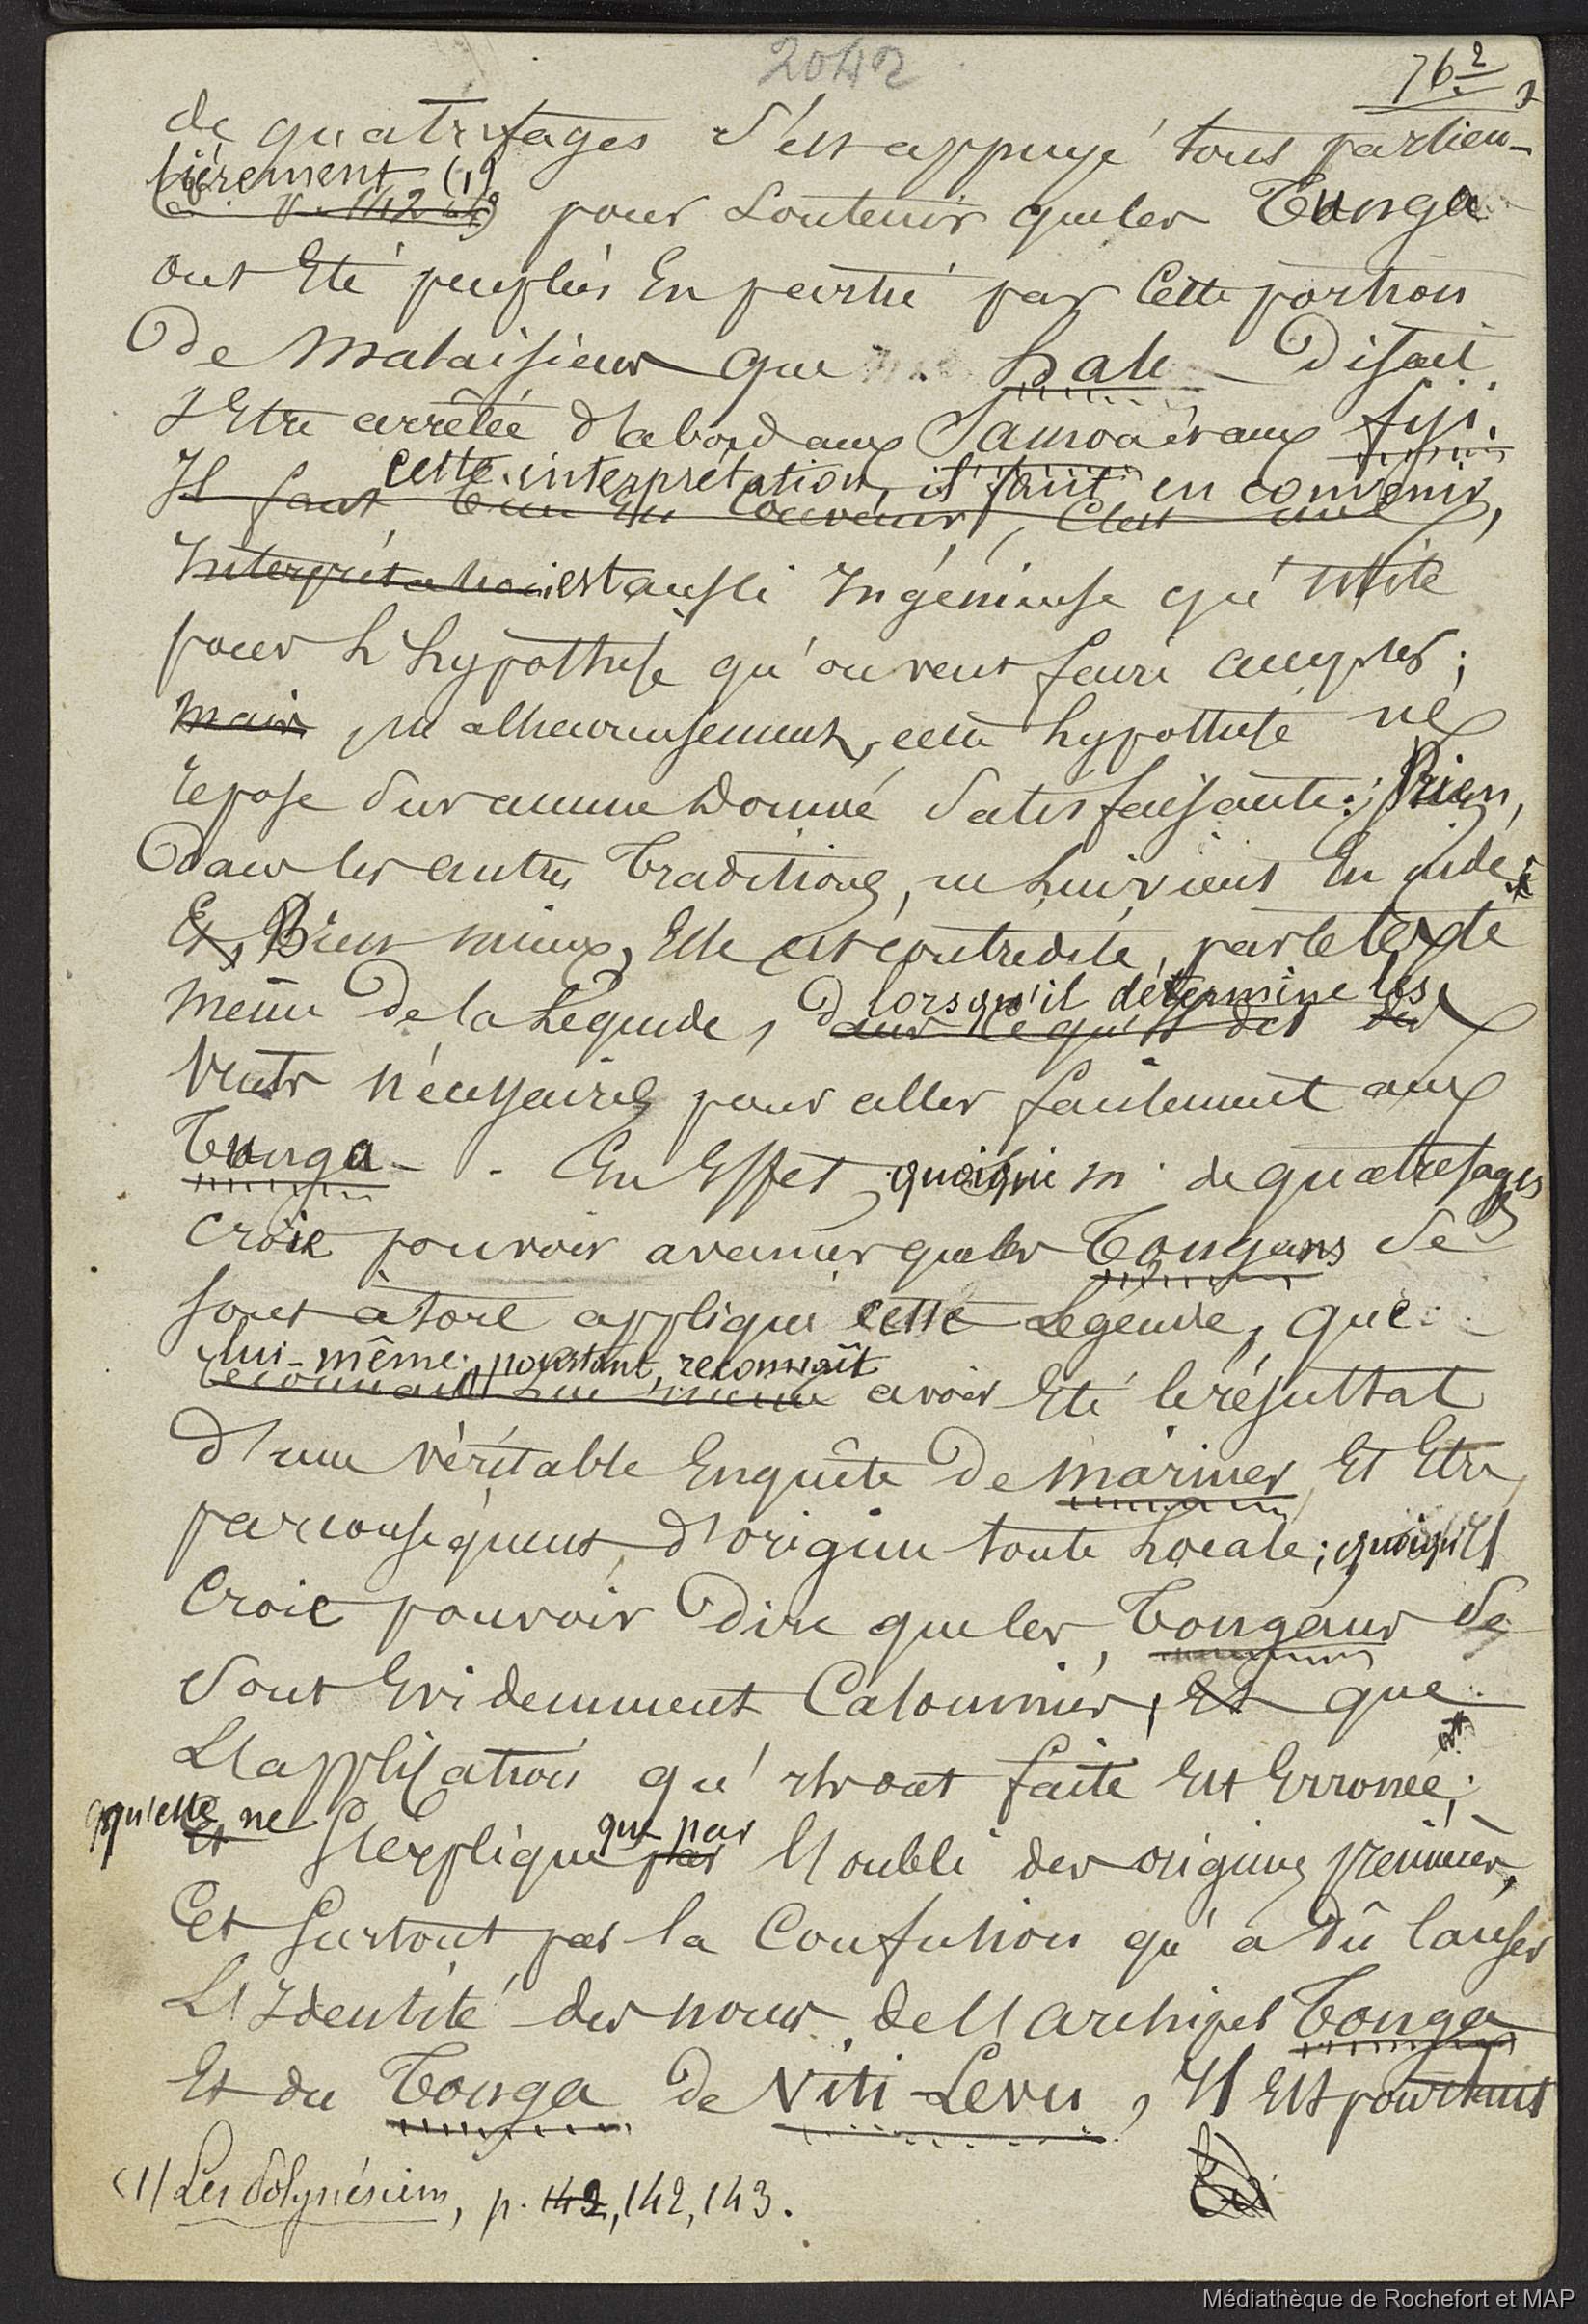 2042
76 2
de quatrefages s'est appuyé tous particu-
lièrement (1)
pour soutenir que les Tunga
ont Eté peuplés En partie par Cette portion
De Malaisiens que hale Disait
s'Etre arrêtée d'abord aux Samoa et aux fiji.
cette interprétation, il faut en convenir,
Il faut En Convenir, C'est une
Interprétation est aussi Ingénieuse qu'utile
pour L'hypothèse qu'on veut faire accepter;
mais malheureusement, cette hypothèse ne
repose sur aucune Donnée Satisfaisante; Rien,
Dans les autres Traditions, ne lui vient En aide;
Et, Bien mieux, Elle est contredite, par le texte
lorsqu'il détermine les
même De la Légende, Dans ce qu'il dit des
Vents nécessaires pour aller facilement aux
Tunga. - En Effet, quoique m. de quatrefages
croie pouvoir avancer que les Tongans se
sont à tort appliqué cette Légende, que
lui-même, pourtant, reconnaît
reconnait lui même avoir Eté le résultat
d'une véritable Enquête De mariner, Et Etre,
par conséquent, d'origine toute Locale; quoiqu'Il
Croie pouvoir Dire que les Tongans se
sont Evidemment Calomniés, Et que
L'application qu'ils ont faite Est Erronée;
qu'elle ne que par
Et s'explique par l'oubli des origines premières,
Et surtout par la Confusion qu'a dû Causer
L'Identité des noms de l'archipel Tonga
Et du Tonga De Viti-Levu, Il Est pourtant
(1) Les Polynésiens, p. 142, 142, 143.
Médiathèque de Rochefort et MAP